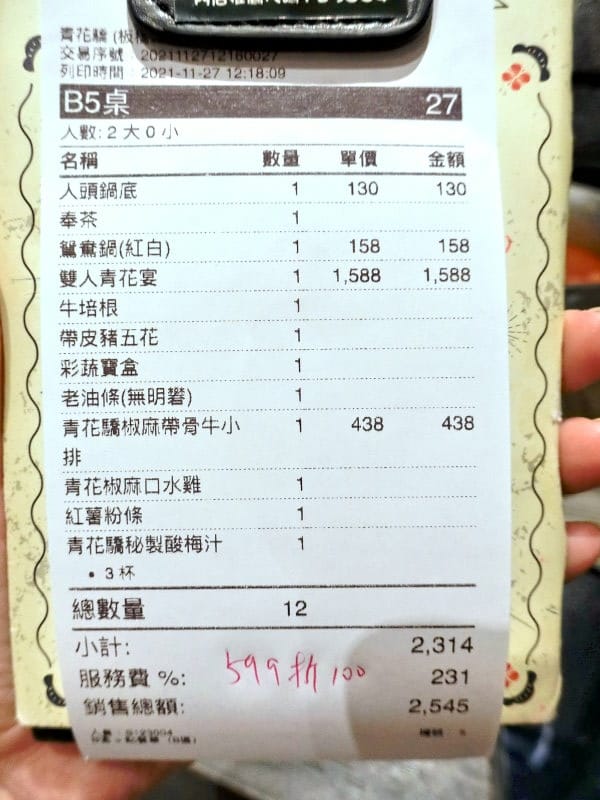 青花驕 (板橋
交易序號 : 2021112712180027
列印時間 : 2021-11-27 12:18:09
B5桌 27
人數: 2 大 0 小
名稱 數量 單價 金額
人頭鍋底 1 130 130
奉茶 1
鴛鴦鍋(紅白) 1 158 158
雙人青花宴 1 1,588 1,588
牛培根 1
帶皮豬五花 1
彩蔬寶盒 1
老油條(無明礬) 1
青花驕椒麻帶骨牛小 1 438 438
排
青花椒麻口水雞 1
紅薯粉條 1
青花驕秘製酸梅汁 1
• 3 杯
總數量 12
小計: 2,314
服務費 %: 599折100 231
銷售總額: 2,545